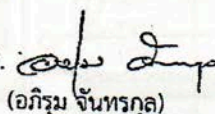 (อภิรุม จันทรกุล)